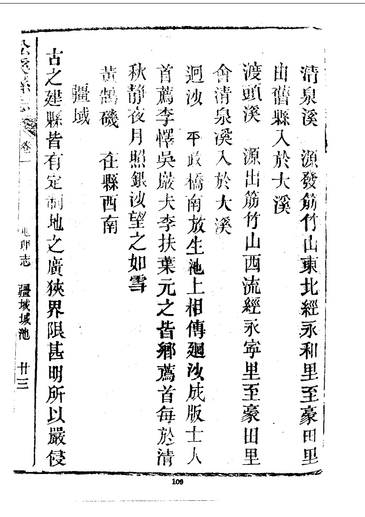 清泉溪　源發筋竹山東北經永和里至豪田里
由舊縣入於大溪
渡頭溪　源出筋竹山西流經永寧里至豪田里
會清泉溪入於大溪
迴沙　平政橋南放生池上相傳廻沙成版士人
首薦李懌吳嚴夫李扶葉元之皆鄉薦首每於清
秋靜夜月照銀沙望之如雪
黃鵠磯　在縣西南
疆域
古之建縣皆有定制地之廣狹界限甚明所以嚴侵
卷一
志
疆域城池
廿三
109